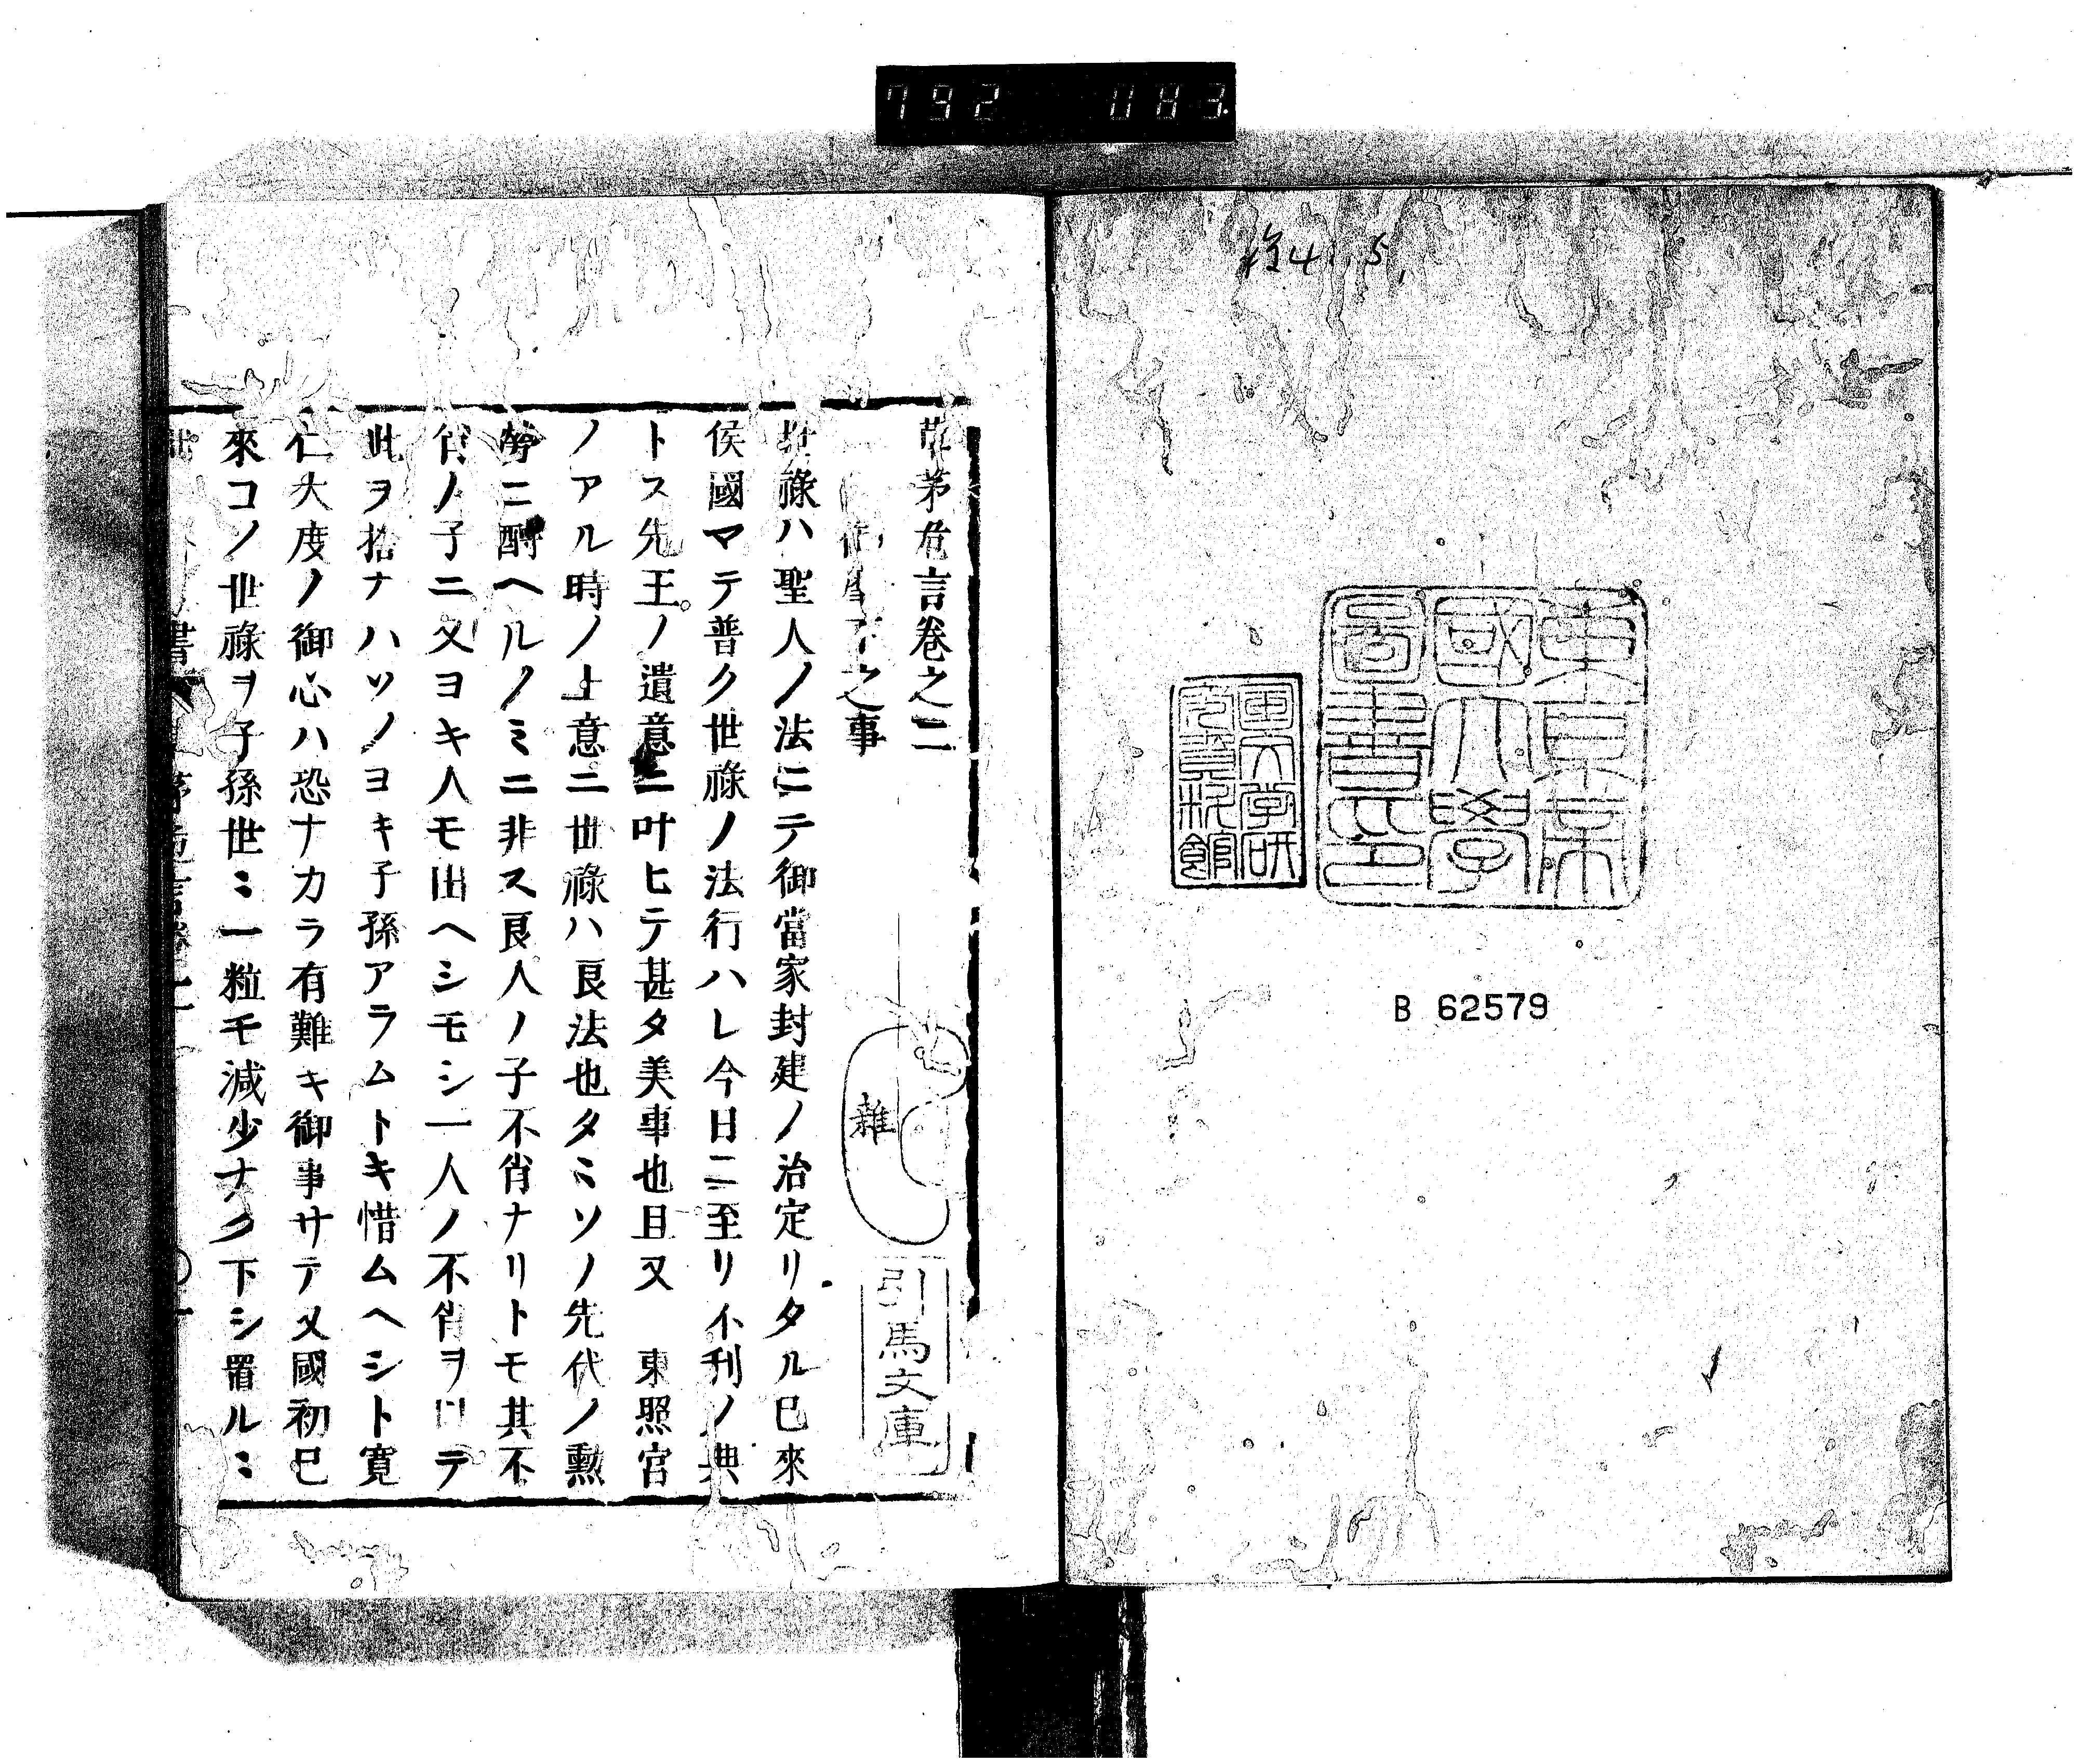 792 083
检4 5
東京
國大學
圖書印
國大学研
究資料館
B 62579
草茅危言卷之二
之事
雜
引馬文庫
世祿ハ聖人ノ法ニテ御當家封建ノ治定リタル巳來
侯國マテ普ク世祿ノ法行ハレ今日ニ至リ不刊ノ典
トス先王ノ遺意ニ叶ヒテ甚タ美事也且又 東照宮
ノアル時ノ上意ニ世祿ハ良法也タミソノ先代ノ勲
勞ニ酬ヘルノミニ非ス良人ノ子不肖ナリトモ其不
肖ノ子ニ又ヨキ人モ出ヘシモシ一人ノ不肖ヲ以テ
此ヲ捨ナハソノヨキ子孫アラムトキ惜ムヘシト寛
仁大度ノ御心ハ恐ナカラ有難キ御事サテ又國初巳
來コノ世祿ヲ子孫世ミ一粒モ減少ナク下シ置ルミ